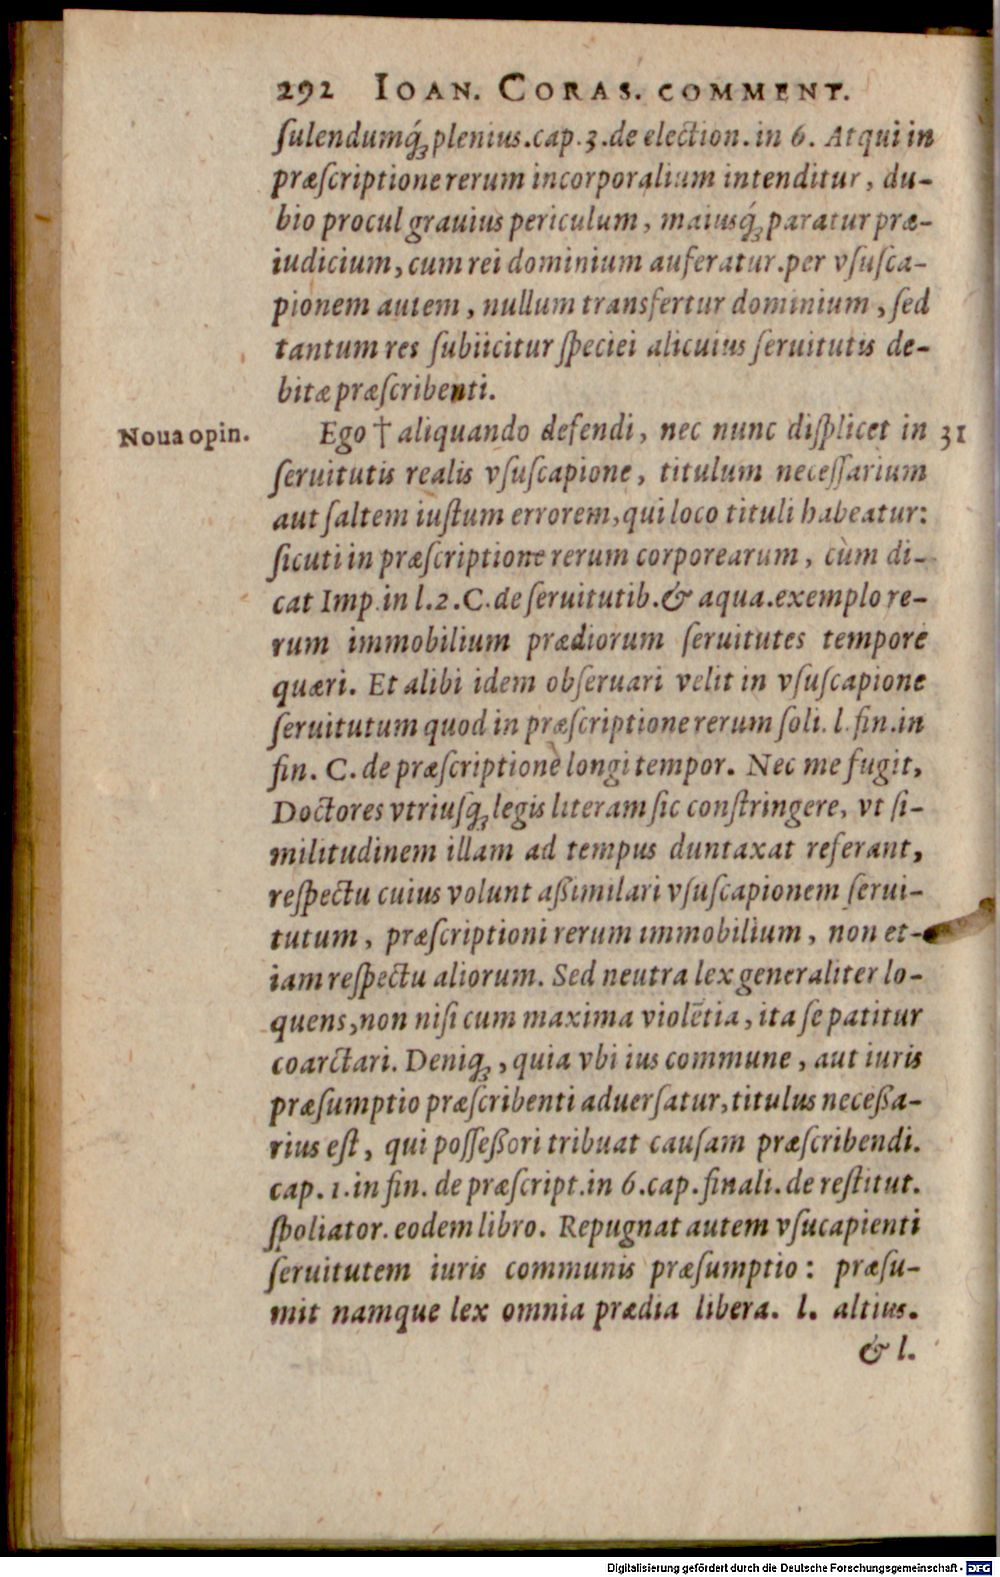 292 IOAN. CORAS. COMMENT.
ſulendumq́ꝫ plenius. cap. 3. de election. in 6. Atqui in
præſcriptione rerum incorporalium intenditur, du-
bio procul grauius periculum, maiusq́ꝫ paratur præ-
iudicium, cum rei dominium auferatur. per vſuſca-
pionem autem, nullum transfertur dominium, ſed
tantum res ſubiicitur ſpeciei alicuius ſeruitutis de-
bitæ præſcribenti.
Noua opin. Ego † aliquando defendi, nec nunc diſplicet in 31
ſeruitutis realis vſuſcapione, titulum neceſſarium
aut ſaltem iuſtum errorem, qui loco tituli habeatur:
ſicuti in præſcriptione rerum corporearum, cùm di-
cat Imp. in l. 2. C. de ſeruitutib. & aqua. exemplo re-
rum immobilium prædiorum ſeruitutes tempore
quæri. Et alibi idem obſeruari velit in vſuſcapione
ſeruitutum quod in præſcriptione rerum ſoli. l. fin. in
fin. C. de præſcriptione longi tempor. Nec me fugit,
Doctores vtriuſqꝫ legis literam ſic conſtringere, vt ſi-
militudinem illam ad tempus duntaxat referant,
reſpectu cuius volunt aßimilari vſuſcapionem ſerui-
tutum, præſcriptioni rerum immobilium, non et-
iam reſpectu aliorum. Sed neutra lex generaliter lo-
quens, non niſi cum maxima violẽtia, ita ſe patitur
coarctari. Deniqꝫ, quia vbi ius commune, aut iuris
præſumptio præſcribenti aduerſatur, titulus neceßa-
rius eſt, qui poſſeßori tribuat cauſam præſcribendi.
cap. 1. in fin. de præſcript. in 6. cap. finali. de reſtitut.
ſpoliator. eodem libro. Repugnat autem vſucapienti
ſeruitutem iuris communis præſumptio: præſu-
mit namque lex omnia prædia libera. l. altius.
& l.
Digitalisierung gefördert durch die Deutsche Forschungsgemeinschaft - DFG